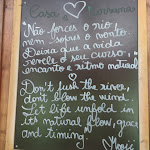 Casa
Não forces o rio,
nem sopres o vento.
Deixa que a vida
revele o seu curso,
encanto e ritmo natural
Don't push the river,
dont blow the wind.
Let life unfold in
its natural flow, grace
and timing.
Mooji